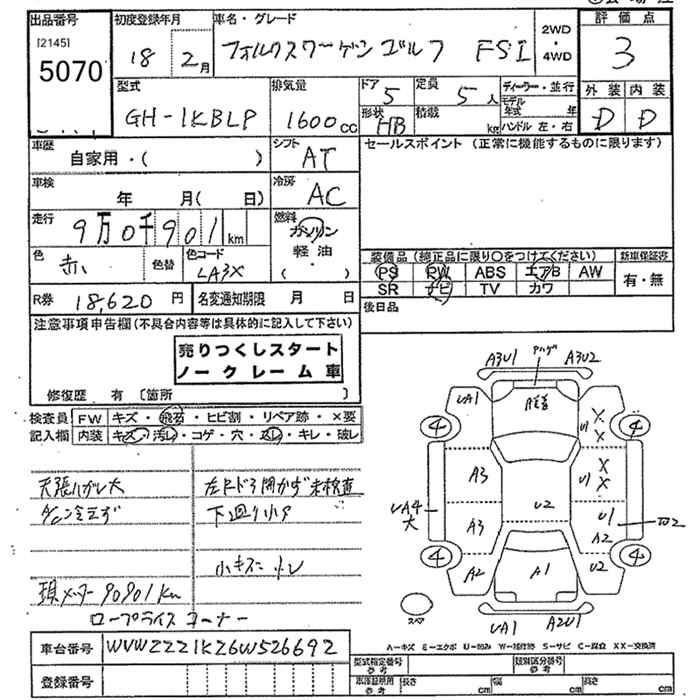 出品番号 初度登録年月 車名・グレード 2WD・4WD 評価点
[2145]
5070
18 2月 フォルクスワーゲン ゴルフ FSI 3
型式 排気量 ドア 定員 ディーラー・並行 外装 内装
GH-1KBLP 1600cc 5 5人 モデル年式 年 D D
形状 HB 積載 kg ハンドル 左・右
車歴 自家用・( ) シフト AT セールスポイント(正常に機能するものに限ります)
車検 年 月( 日) 冷房 AC
走行 9万0千901km 燃料 ガソリン 軽油 ( ・ )
色 赤 色替 色コード LA3X
装備品(純正品に限り○をつけてください) 新車保証書
PS PW ABS エアB AW 有・無
SR ナビ TV カワ
R券 18,620円 名変通知期限 月 日 後日品
注意事項申告欄(不具合内容等は具体的に記入して下さい)
売りつくしスタート
ノークレーム車
修復歴 有〔箇所 〕
検査員記入欄 FW キズ・飛石・ヒビ割・リペア跡・×要
内装 キズ・汚レ・コゲ・穴・スレ・キレ・破レ
天張ハガレ大 左Fドア開かず 未検査
A/C冷えず 下廻り小サ
小キズ
現メーター 90901Km
ロープライスコーナー
車台番号 WVWZZZ1KZ6W526692
登録番号
A3U1 A3U2
UA1 U1 X X
4 4
A3 U1 X X
UA4 大 U2 U1
A3 A2
4 4
A2 A1 U2
スペア UA1 A2U1
A-キズ E-エクボ U-凹み W-補修跡 S-サビ C-腐食 XX-交換済
型式指定番号 参考 類別区分番号 参考
車庫証明用 参考 長さ cm 幅 cm 高さ cm